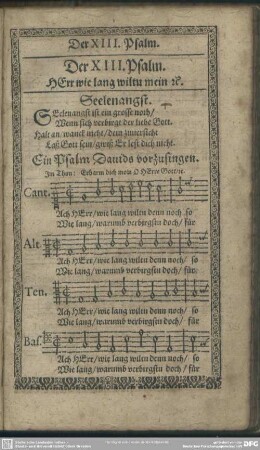 Der XIII. Psalm.
Der XIII. Psalm.
HErr wie lang wiltu mein ꝛc.
Seelenangst.
SEelenangst ist ein grosse noth/
Wenn sich verbirgt der liebe Gott.
Halt an/ wanck nicht/ dein zuversicht
Laß Gott sein/ gwiß Er lest dich nicht.
Ein Psalm Davids vorzusingen.
Im Thon: Erbarm dich mein O HErre Gott/ꝛc.
Cant.
Ach HErr/ wie lang wiltu denn noch so
Wie lang/ warumb verbirgstu doch/ für
Alt.
Ach HErr/ wie lang wiltu denn noch/ so
Wie lang/ warumb verbirgstu doch/ für
Ten.
Ach HErr/ wie lang wiltu denn noch/ so
Wie lang/ warumb verbirgstu doch/ für
Bas.
Ach HErr/ wie lang wiltu denn noch/ so
Wie lang/ warumb verbirgstu doch/ für
DFG